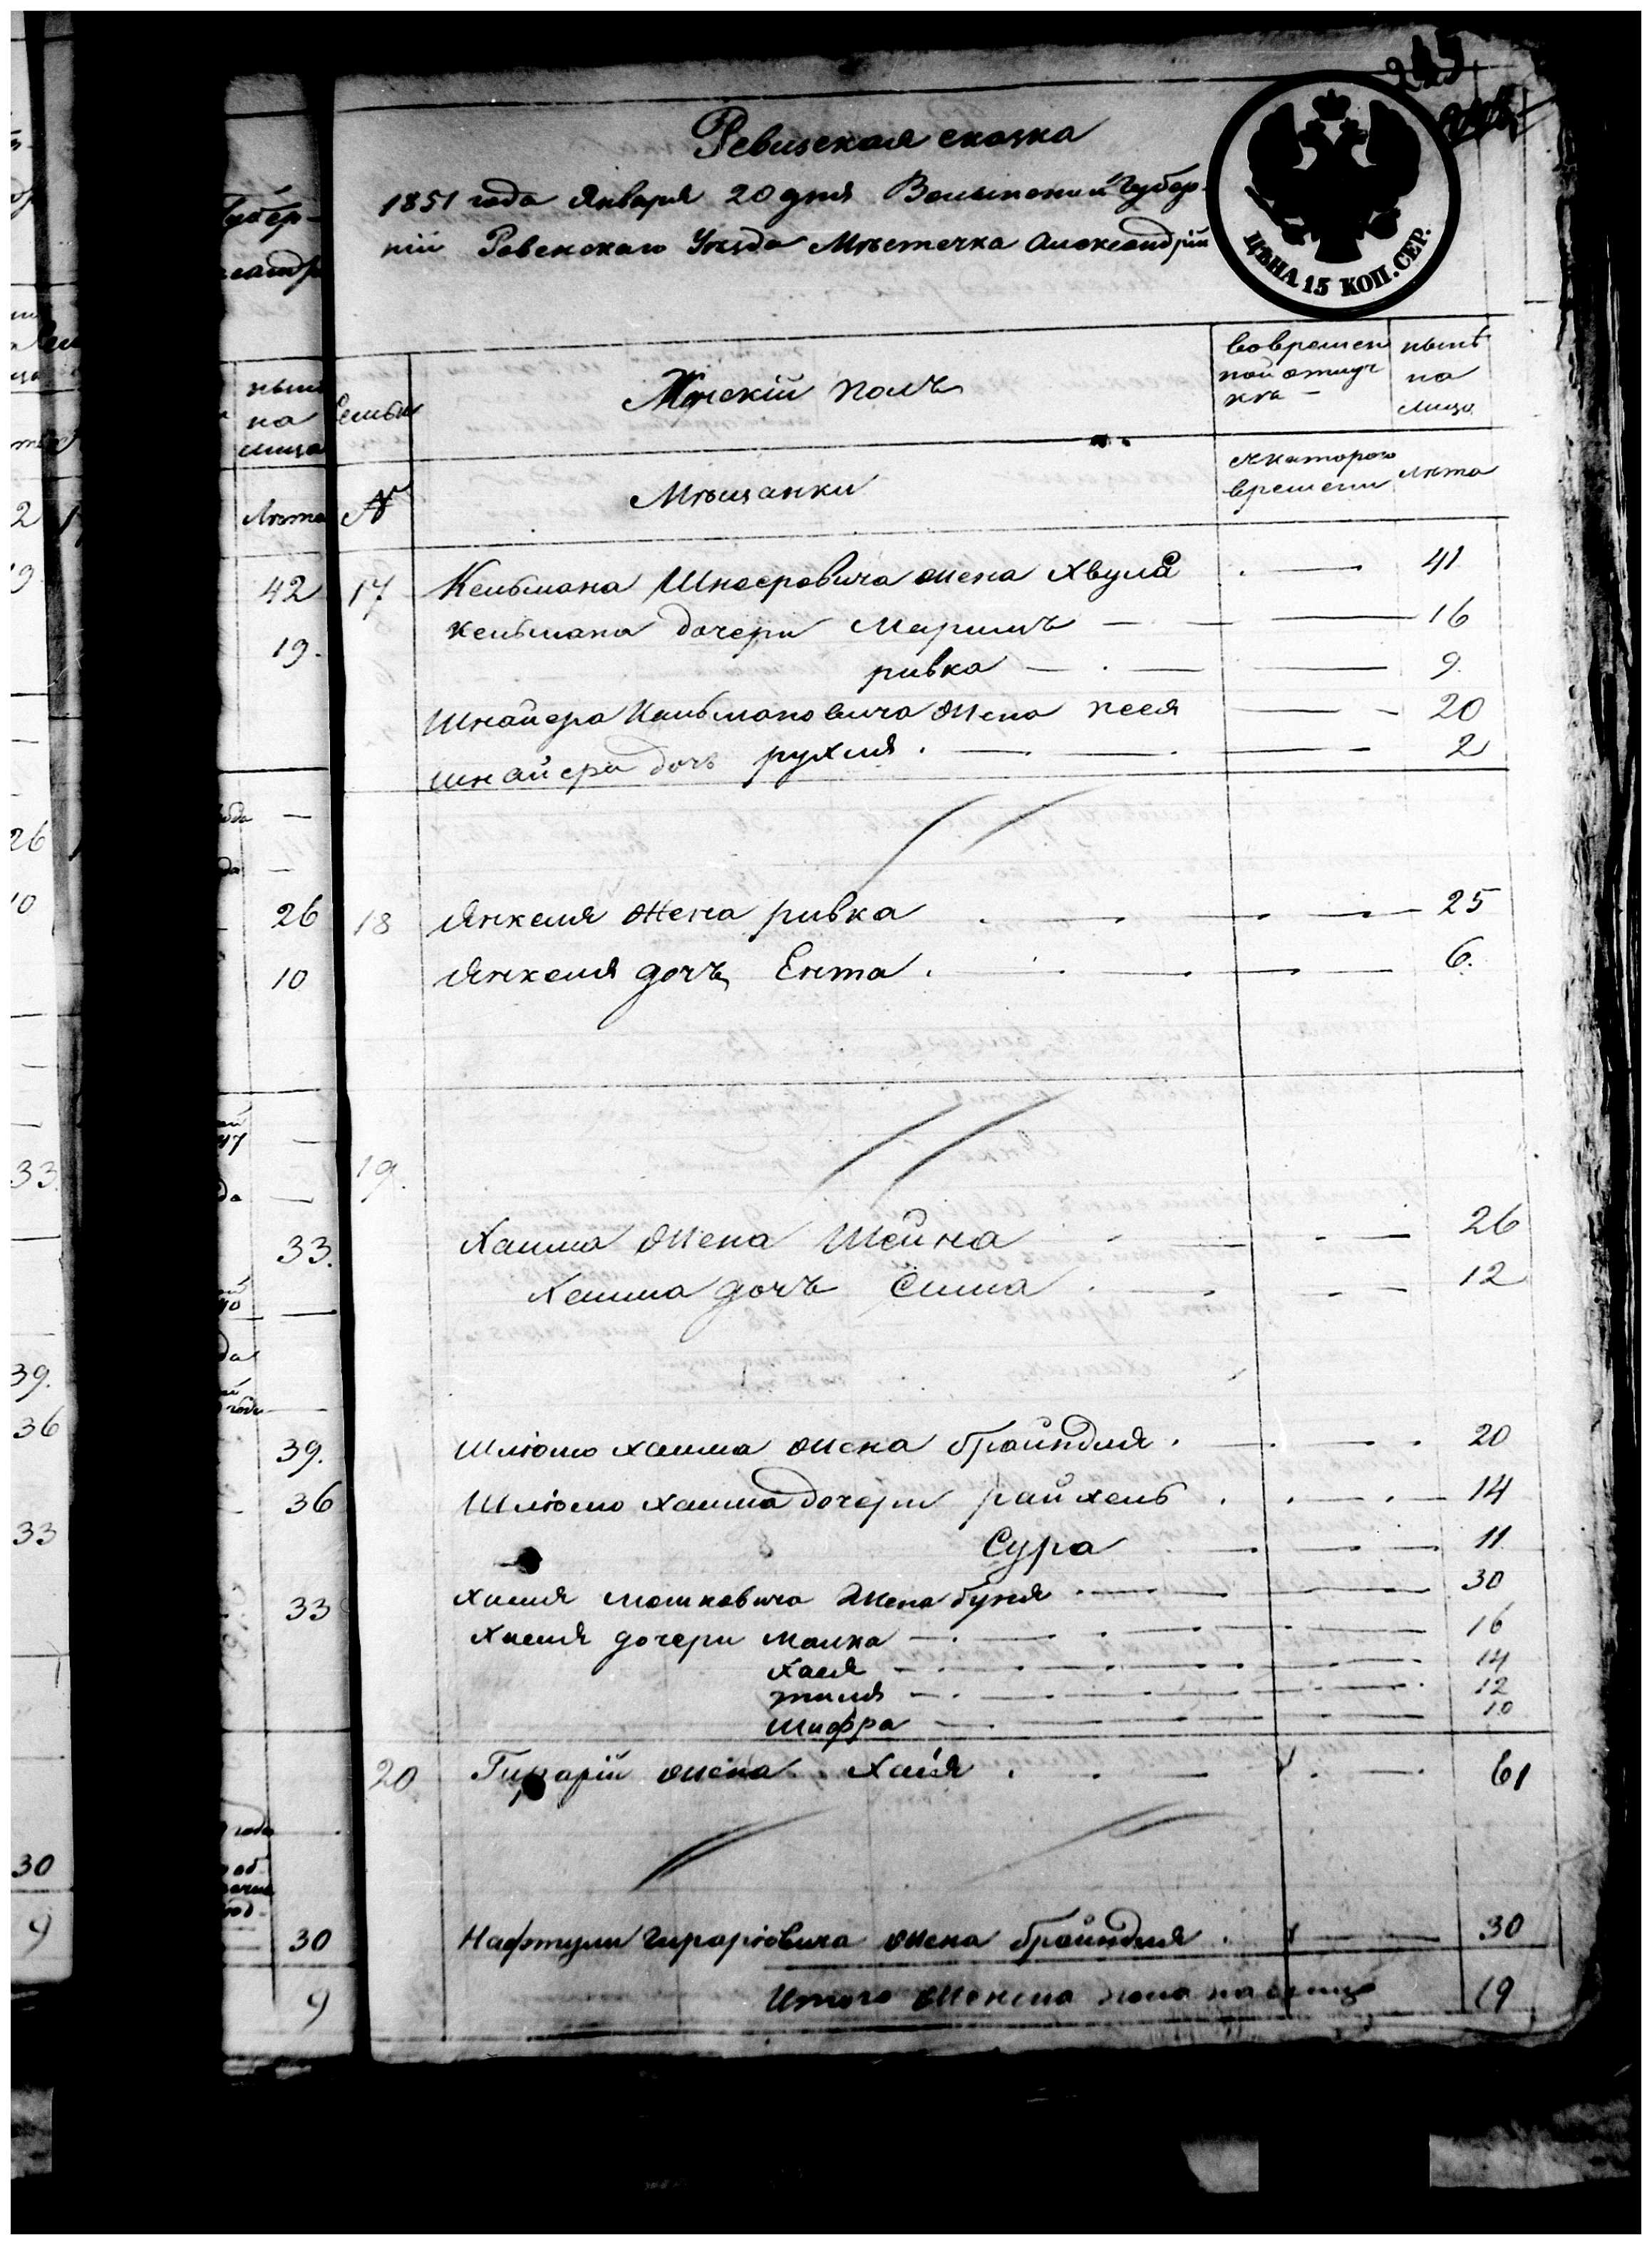 Ревизская сказка
1851 года Января 20 дня Волынской Губер-
ніи Ровенскаго Уѣзда Мѣстечка Александріи
ЦѢНА 15 КОП. СЕР.
Губер-
нынѣ
на
лица
Семьи
Женскій полъ
во времен
ной отлуч
кѣ —
нынѣ
на
лицо
Лѣта
№
Мѣщанки
съ котораго
времени
лѣта
42 17 Кельмана Шнееровича жена Хвула — 41
19. Кельмана дочери Маримъ — 16
ривка — 9
Шнайера Кельмановича жена песя — 20
Шнайера дочь рухля — 2
26 18 Янкеля жена ривка — 25
10 Янкеля дочъ Ента — 6.
19.
33. Хаима жена Шейна — 26
Хаима дочъ Сима — 12
39. Шлiомо хаима жена брайндля — 20
36 Шлiомо хаима дочери райхель — 14
Сура — 11
33 хиля мошковича жена буня — 30
хиля дочери малка — 16
хая — 14
12
шифра — 10
20 жена Хая — 61
30 Нафтули жена брайндля — 30
9 Итого женска пола на лицо 19